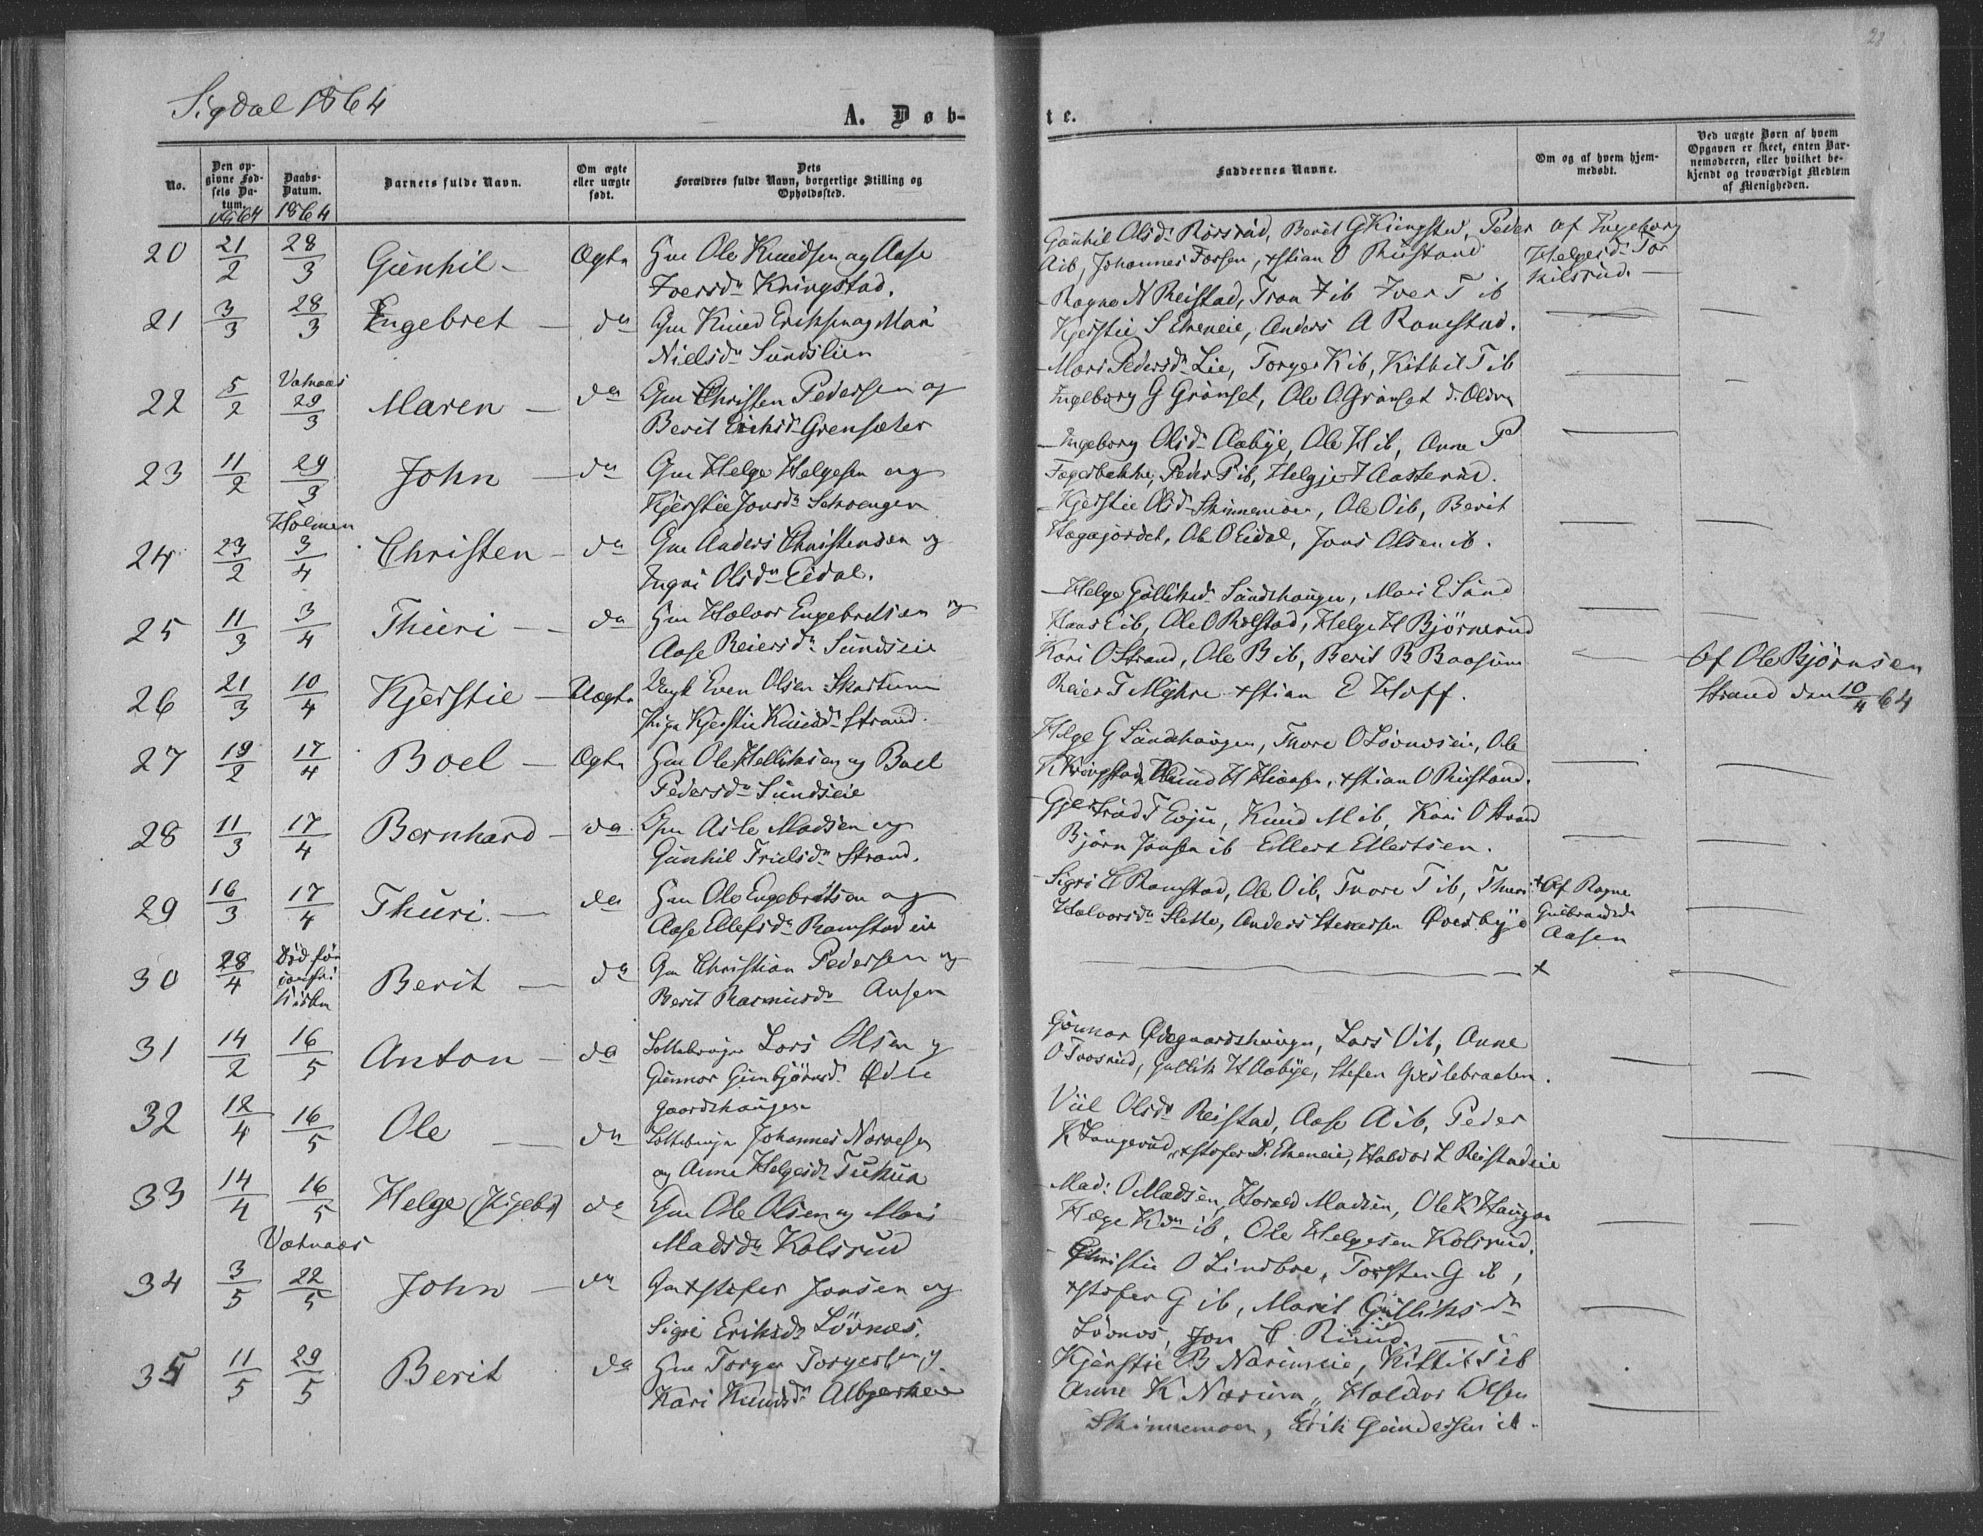 28
Sigdal 1864
A. Døb-
te.
No.
Den op-
givne Fød-
sels Da-
tum.
1864
Daabs-
Datum.
1864
Barnets fulde Navn.
Om ægte
eller uægte
født.
Dets
Forældres fulde Navn, borgerlige Stilling og
Opholdssted.
Faddernes Navne.
Om og af hvem hjem-
medøbt.
Ved uægte Børn af hvem
Opgaven er skeet, enten Bar-
nemoderen, eller hvilket be-
kjendt og troværdigt Medlem
af Menigheden.
20 21/2 28/3 Gunhil Ægte Gm Ole Knudsen og Aase
Iversdr Kringstad.
Gunhil Olsdr Berit G Kringstad, Peder
A ib, Johannes Forsen, xstian O Rustand
af Ingeborg
Helgesd. Tor
kilsrud.
21 3/3 28/3 Engebret do Gm Knud Eriksen og Mari
Nielsdr Sundslien
Ragne N Reistad, Tron T ib Iver T ib
Kjerstie S Eheneie, Anders A Ramstad.
22 5/2 Vatnaas 29/3 Maren do Gm Christen Pedersen og
Berit Eriksd. Grensæter
Mari Pedersdr Lie, Torger K ib, Kittil T ib
Ingeborg G Grønset, Ole O. Grønset
23 11/2 29/3 John do Gm Helge Helgesen og
Kjerstie Jonsdr
Ingeborg Olsdr Aabye, Ole H ib, Anne P
Fagerbakke, Peder P ib, Helge H Aasterud.
24 23/2 Holmen 3/4 Christen do Gm Anders Christensen og
Ingri Olsdr Eidal.
Kjerstie Olsd. Skinnemoen, Ole O ib, Berit
Hagajordet, Ole O Eidal, Jons Olsen ib.
25 11/3 3/4 Thuri do Gm Halvor Engebretsen og
Aase Reiersdr Sundseie
Helge Gulliksd. Sandshaugen, Mari E Sand
Hans E ib, Ole O Rolstad, Helge H Bjørnerud
26 21/3 10/4 Kjerstie Uægte Ungk Even Olsen Skartum
Pige Kjerstie Knudsd. Strand.
Kari O Strand, Ole B ib, Berit B Baasum
Reier T Myhre xstian E Hoff.
Af Ole Bjørnsen
Strand den 10/4 64
27 19/2 17/4 Boel Ægte Gm Ole Helliksen og Boel
Pedersdr Sundseie
Helge G Sandshaugen, Thore O Løvnæseie, Ole
K Kringstad, Knud H xstian O Rustand.
28 11/3 17/4 Bernhard do. Gm Asle Madsen og
Gunhil Trulsdr Strand.
Gjertrud T Evju, Knud M ib, Kari O Strand
Bjørn Jonsen ib Ellert Ellertsen.
29 16/3 17/4 Thuri. do Gm Ole Engebretsen og
Aase Ellefsdr Ramstadeie
Sigri E Ramstad, Ole O ib, Thore T ib, Thuri
Halvorsdr Slette, Anders Stenersen Øverbye
Af Ragne
Gulbrandsd.
Aasen
30 28/4 Død før
Berit do Gm Christian Pedersen og
Berit Rasmusdr Aasen
x
31 14/2 16/5 Anton do Lars Olsen og
Gunnor Gunbjørnsd. Øde
gaardshaugen
Gunnor Ødegaardshaugen, Lars O ib, Anne
O Tvorud, Gullik H Aabye, Stefen
32 12/4 16/5 Ole do Johannes
og Anne Helgesdr
Viil Olsdr Reistad, Aase A ib, Peder
K Langerud, xstofer S. Eheneie, Haldor L Reistadeie
33 14/4 16/5 Helge do Gm Ole Olsen og Mari
Madsdr Kolsrud
Mad: O Madsen, Harald Madsen, Ole K Haugen
Helge K ib, Ole Helgesen Kolsrud.
34 3/5 Vatnaas 22/5 John do Gm xstofer Jonsen og
Sigri Eriksdr Løvnæs.
Christie O Lindboe, Torsten G ib,
xstofer G ib, Marit Gulliksdr
Løvnæs, Jon C Ruud.
35 11/5 29/5 Berit do Gm Torger Torgersen og
Kari Knudsdr Albjerkeie
Kjerstie B Narumeie, Kittil T ib
Anne K Narum, Haldor Olsen
Skinnemoen, Erik Gundersen ib.